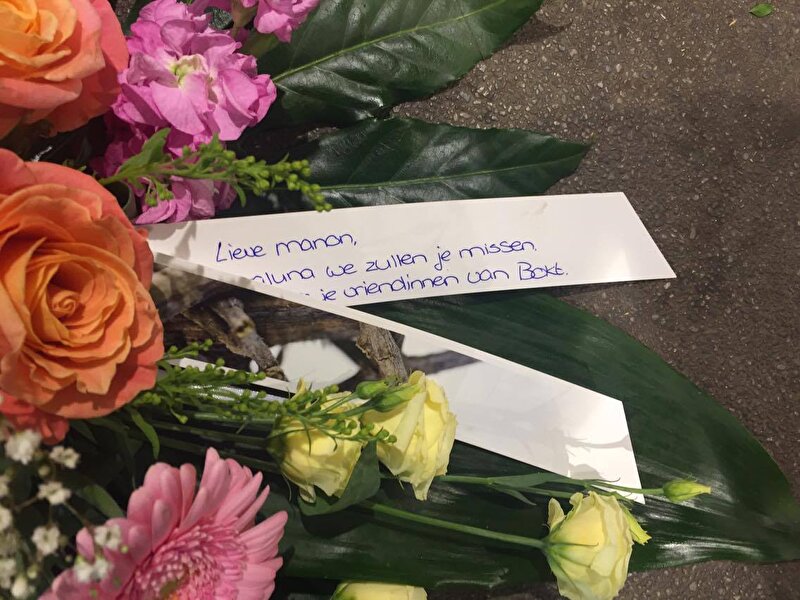 Lieve manon,
we zullen je missen.
je vriendinnen van Bokt.